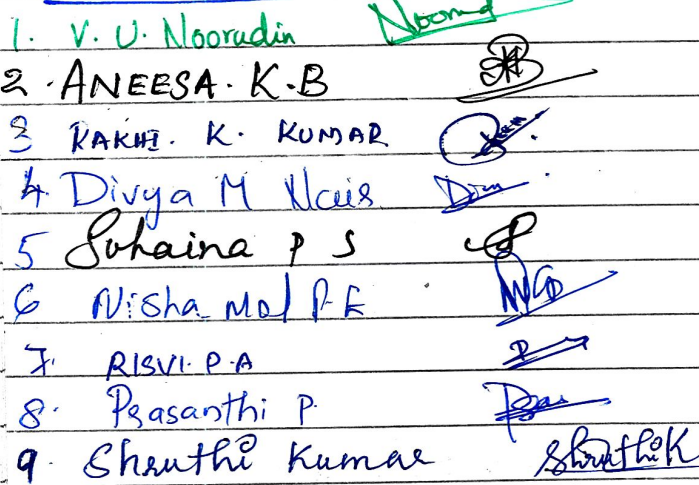 1. V. U. Noorudin Noorud
2. ANEESA. K.B
3 RAKHI. K. KUMAR
4. Divya M Nair Divya
5 Suhaina P S
6 Nisha Mol P.E
7. RISVI. P.A
8. Prasanthi P.
9. Shruthi Kumar Shruthi K